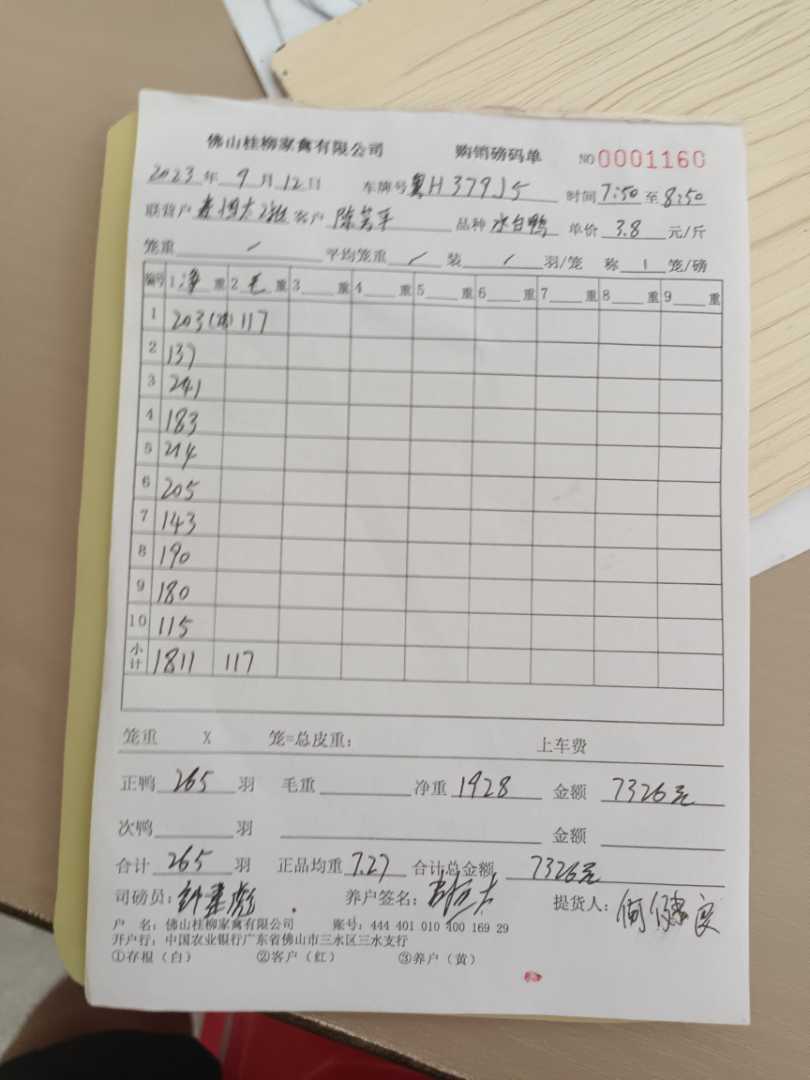 佛山桂柳家禽有限公司 购销磅码单 NO 0001160
2023年 9月 12日 车牌号 粤H37915 时间 7:50 至 8:50
联营户 客户 陈 平 品种 水白鸭 单价 3.8 元/斤
笼重 / 平均笼重 / 装 / 羽/笼 称 1 笼/磅
编号 1 净 重 2 毛 重 3 重 4 重 5 重 6 重 7 重 8 重 9 重
1 203 117
2 137
3 241
4 183
5 214
6 205
7 143
8 190
9 180
10 115
小计 1811 117
笼重 X 笼=总皮重: 上车费
正鸭 265 羽 毛重 净重 1928 金额 7326元
次鸭 羽 金额
合计 265 羽 正品均重 7.27 合计总金额 7326元
司磅员: 养户签名: 提货人:
户 名: 佛山桂柳家禽有限公司 账号: 444 401 010 400 169 29
开户行: 中国农业银行广东省佛山市三水区三水支行
①存根(白) ②客户(红) ③养户(黄)